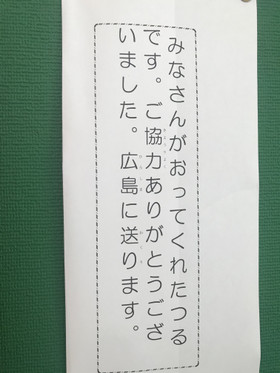 みなさんがおってくれたつる
です。ご協力ありがとうござ
いました。広島に送ります。